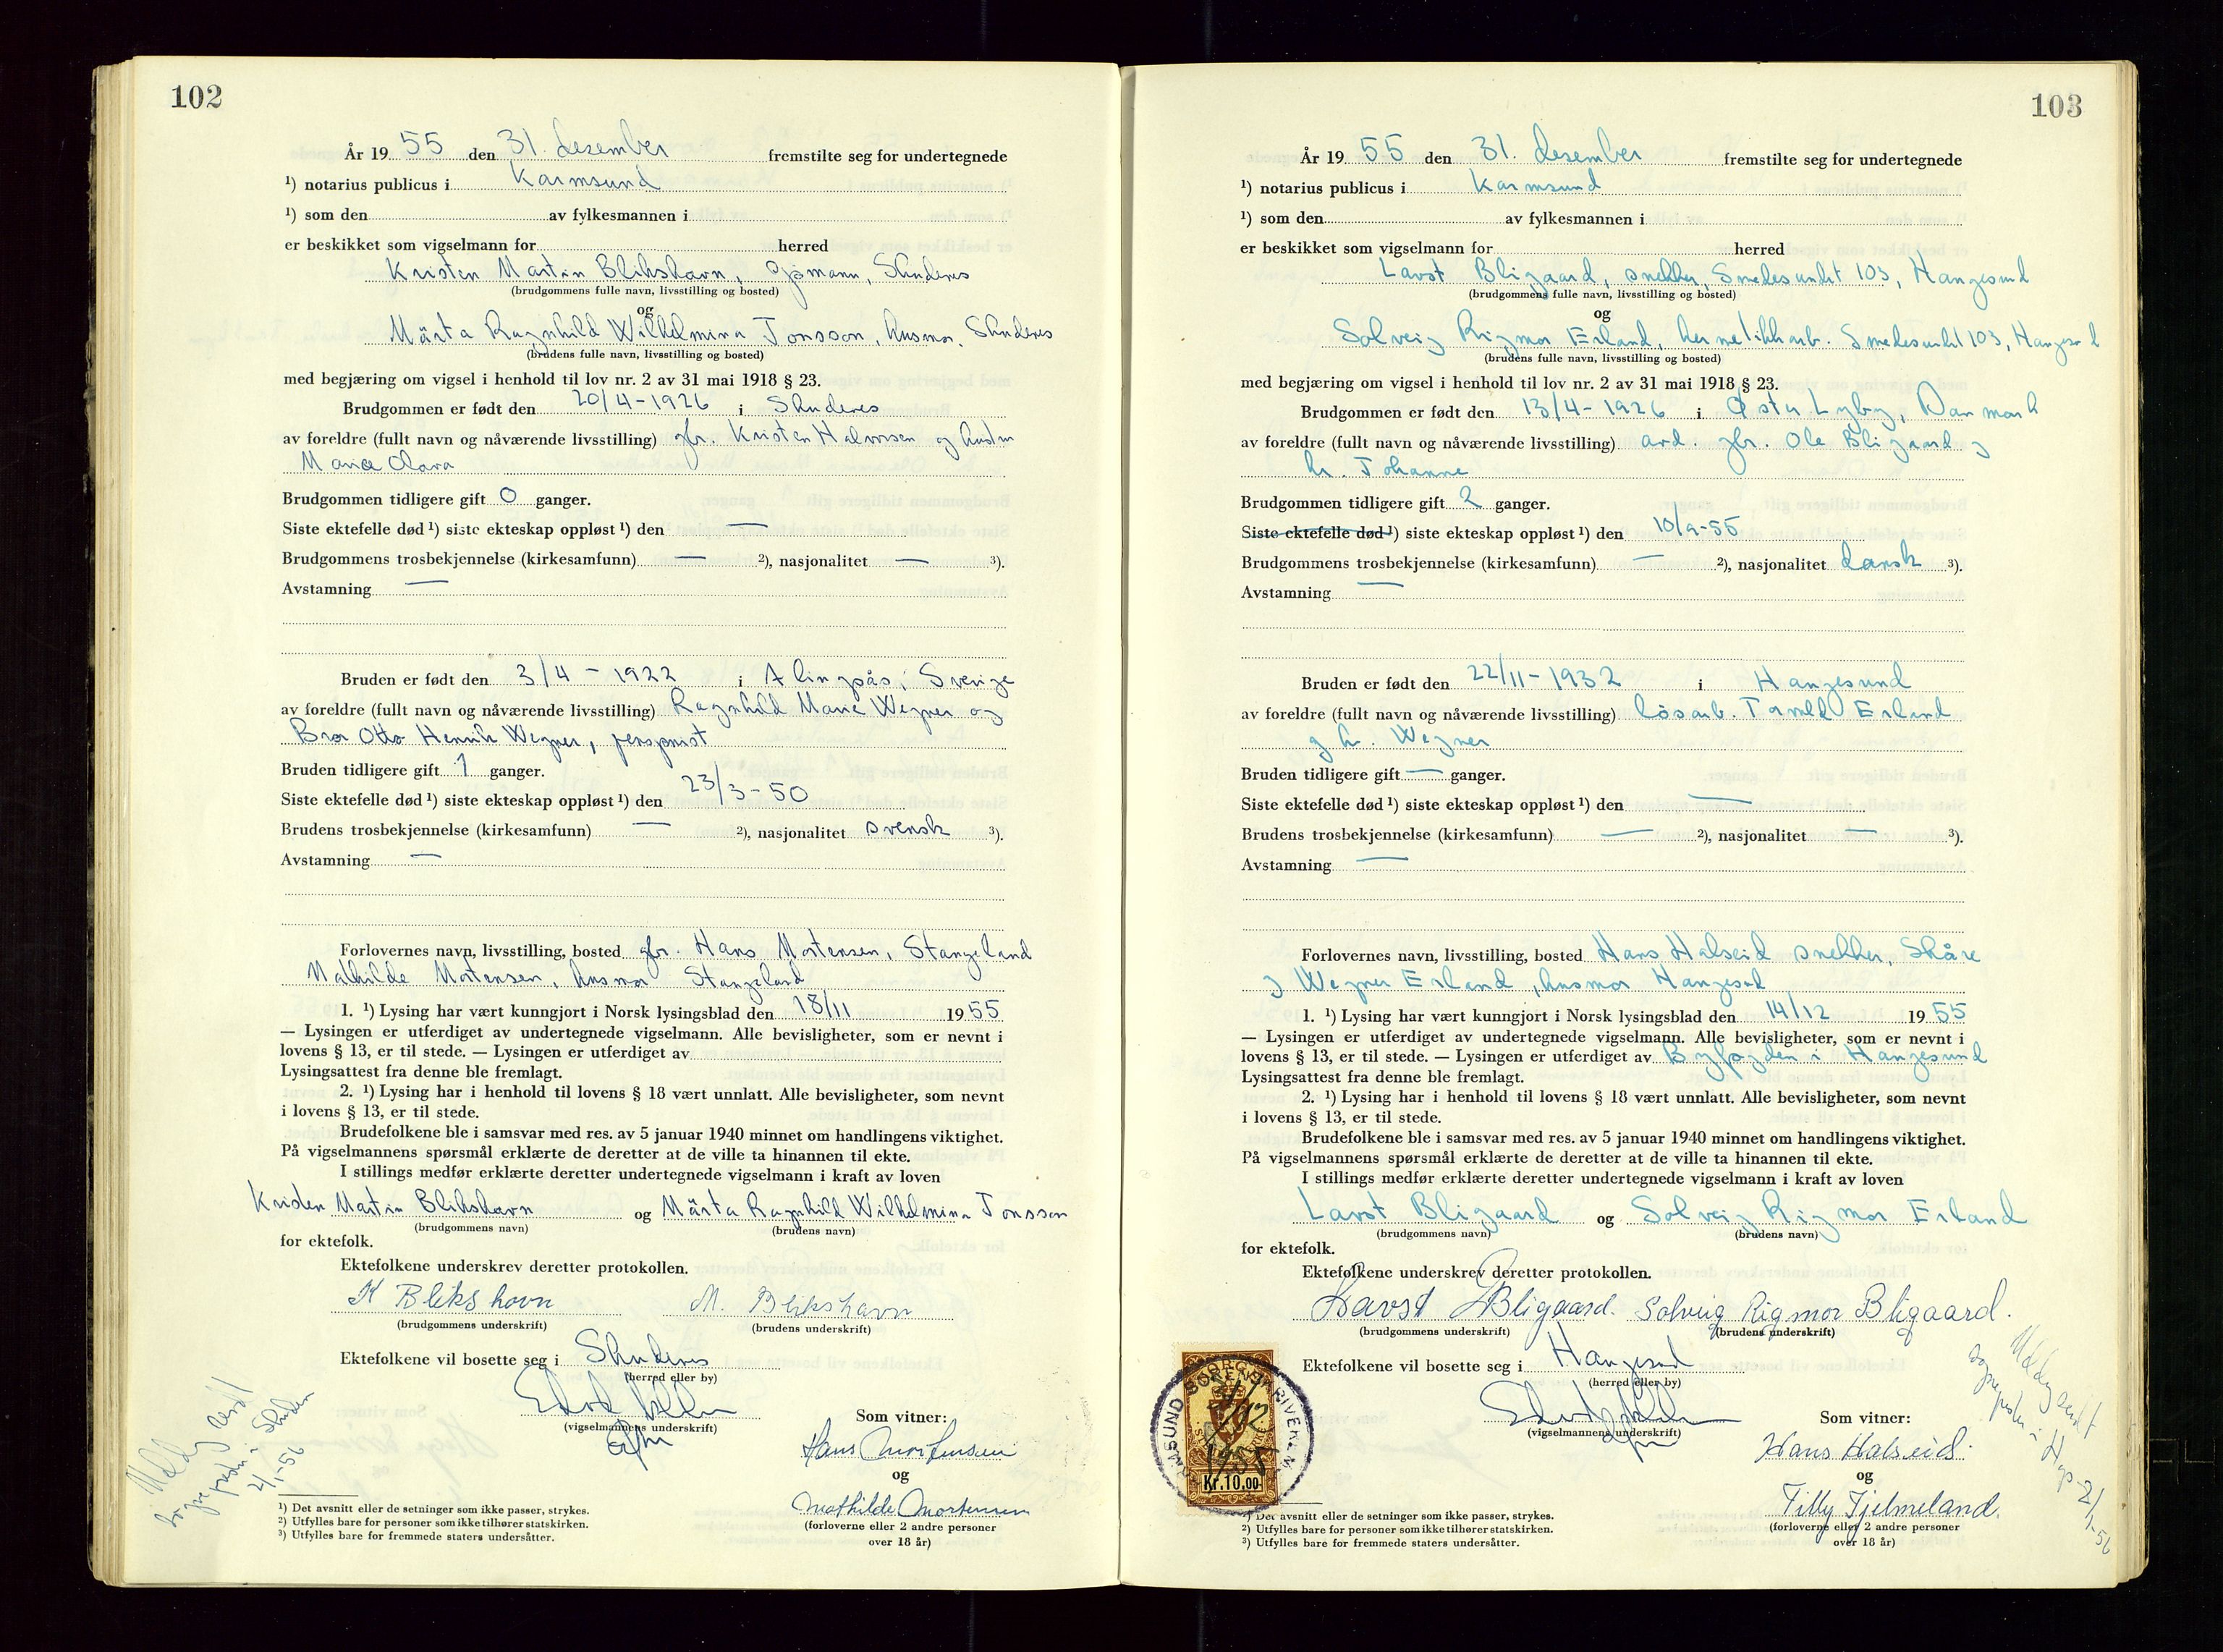 102
År 19 55 den 31. desember fremstilte seg for undertegnede
¹) notarius publicus i Karmsund
¹) som den av fylkesmannen i
er beskikket som vigselmann for herred
Kristen Martin Blikshavn, sjømann, Skudenes
(brudgommens fulle navn, livsstilling og bosted)
og
Märta Ragnhild Wilhelmina Jonsson, husmor, Skudenes
(brudens fulle navn, livsstilling og bosted)
med begjæring om vigsel i henhold til lov nr. 2 av 31 mai 1918 § 23.
Brudgommen er født den 20/4-1926 i Skudenes
av foreldre (fullt navn og nåværende livsstilling) gbr. Kristen Halvorsen og hustru
Marie Clara
Brudgommen tidligere gift 0 ganger.
Siste ektefelle død ¹) siste ekteskap oppløst ¹) den —
Brudgommens trosbekjennelse (kirkesamfunn) — ²), nasjonalitet — ³).
Avstamning —
Bruden er født den 3/4 - 1922 i Alingsås, Sverige
av foreldre (fullt navn og nåværende livsstilling) Ragnhild Marie Wegner og
Bror Otto Henrik Wegner, pensjonist
Bruden tidligere gift 1 ganger.
Siste ektefelle død ¹) siste ekteskap oppløst ¹) den 23/3-50
Brudens trosbekjennelse (kirkesamfunn) — ²), nasjonalitet svensk ³).
Avstamning —
Forlovernes navn, livsstilling, bosted gbr. Hans Mortensen, Stangeland
Mathilde Mortensen, husmor Stangeland
1. ¹) Lysing har vært kunngjort i Norsk lysingsblad den 18/11 19 55
— Lysingen er utferdiget av undertegnede vigselmann. Alle bevisligheter, som er nevnt i
lovens § 13, er til stede. — Lysingen er utferdiget av
Lysingsattest fra denne ble fremlagt.
2. ¹) Lysing har i henhold til lovens § 18 vært unnlatt. Alle bevisligheter, som nevnt
i lovens § 13, er til stede.
Brudefolkene ble i samsvar med res. av 5 januar 1940 minnet om handlingens viktighet.
På vigselmannens spørsmål erklærte de deretter at de ville ta hinannen til ekte.
I stillings medfør erklærte deretter undertegnede vigselmann i kraft av loven
Kristen Martin Blikshavn og Märta Ragnhild Wilhelmina Jonsson
(brudgommens navn) (brudens navn)
for ektefolk.
Ektefolkene underskrev deretter protokollen.
K Blikshavn M. Blikshavn
(brudgommens underskrift) (brudens underskrift)
Ektefolkene vil bosette seg i Skudenes
(herred eller by)
(vigselmannens underskrift)
Som vitner:
Hans Mortensen
og
Mathilde Mortensen
(forloverne eller 2 andre personer
over 18 år)
Melding sendt
2/1-56
¹) Det avsnitt eller de setninger som ikke passer, strykes.
²) Utfylles bare for personer som ikke tilhører statskirken.
³) Utfylles bare for fremmede staters undersåtter.
103
År 19 55 den 31. desember fremstilte seg for undertegnede
¹) notarius publicus i Karmsund
¹) som den av fylkesmannen i
er beskikket som vigselmann for herred
Lavst Bligaard, snekker, Smedesundet 103, Haugesund
(brudgommens fulle navn, livsstilling og bosted)
og
Solveig Rigmor Erland, hermetikkarb. Smedesundet 103, Haugesund
(brudens fulle navn, livsstilling og bosted)
med begjæring om vigsel i henhold til lov nr. 2 av 31 mai 1918 § 23.
Brudgommen er født den 13/4-1926 i Øster Lyby, Danmark
av foreldre (fullt navn og nåværende livsstilling) avd. gbr. Ole Bligaard og
h. Johanne
Brudgommen tidligere gift 2 ganger.
Siste ektefelle død ¹) siste ekteskap oppløst ¹) den 10/9-55
Brudgommens trosbekjennelse (kirkesamfunn) — ²), nasjonalitet dansk ³).
Avstamning —
Bruden er født den 22/11-1932 i Haugesund
av foreldre (fullt navn og nåværende livsstilling) løsarb. Tormod Erland
og h. Wegner
Bruden tidligere gift — ganger.
Siste ektefelle død ¹) siste ekteskap oppløst ¹) den —
Brudens trosbekjennelse (kirkesamfunn) — ²), nasjonalitet — ³).
Avstamning —
Forlovernes navn, livsstilling, bosted Hans Halseid snekker, Skåre
og Wegner Erland, husmor Haugesund
1. ¹) Lysing har vært kunngjort i Norsk lysingsblad den 14/12 19 55
— Lysingen er utferdiget av undertegnede vigselmann. Alle bevisligheter, som er nevnt i
lovens § 13, er til stede. — Lysingen er utferdiget av Byfogden i Haugesund
Lysingsattest fra denne ble fremlagt.
2. ¹) Lysing har i henhold til lovens § 18 vært unnlatt. Alle bevisligheter, som nevnt
i lovens § 13, er til stede.
Brudefolkene ble i samsvar med res. av 5 januar 1940 minnet om handlingens viktighet.
På vigselmannens spørsmål erklærte de deretter at de ville ta hinannen til ekte.
I stillings medfør erklærte deretter undertegnede vigselmann i kraft av loven
Lavst Bligaard og Solveig Rigmor Erland
(brudgommens navn) (brudens navn)
for ektefolk.
Ektefolkene underskrev deretter protokollen.
Lavst Bligaard. Solveig Rigmor Bligaard.
(brudgommens underskrift) (brudens underskrift)
Ektefolkene vil bosette seg i Haugesund
(herred eller by)
(vigselmannens underskrift)
Som vitner:
Hans Halseid.
og
Tilly Fjelmeland.
(forloverne eller 2 andre personer
over 18 år)
Melding sendt
sogneprest i Hgs. 2/1-56
KARMSUND SORENSKRIVEREMB
31/12
1955
Kr.10.00
¹) Det avsnitt eller de setninger som ikke passer, strykes.
²) Utfylles bare for personer som ikke tilhører statskirken.
³) Utfylles bare for fremmede staters undersåtter.